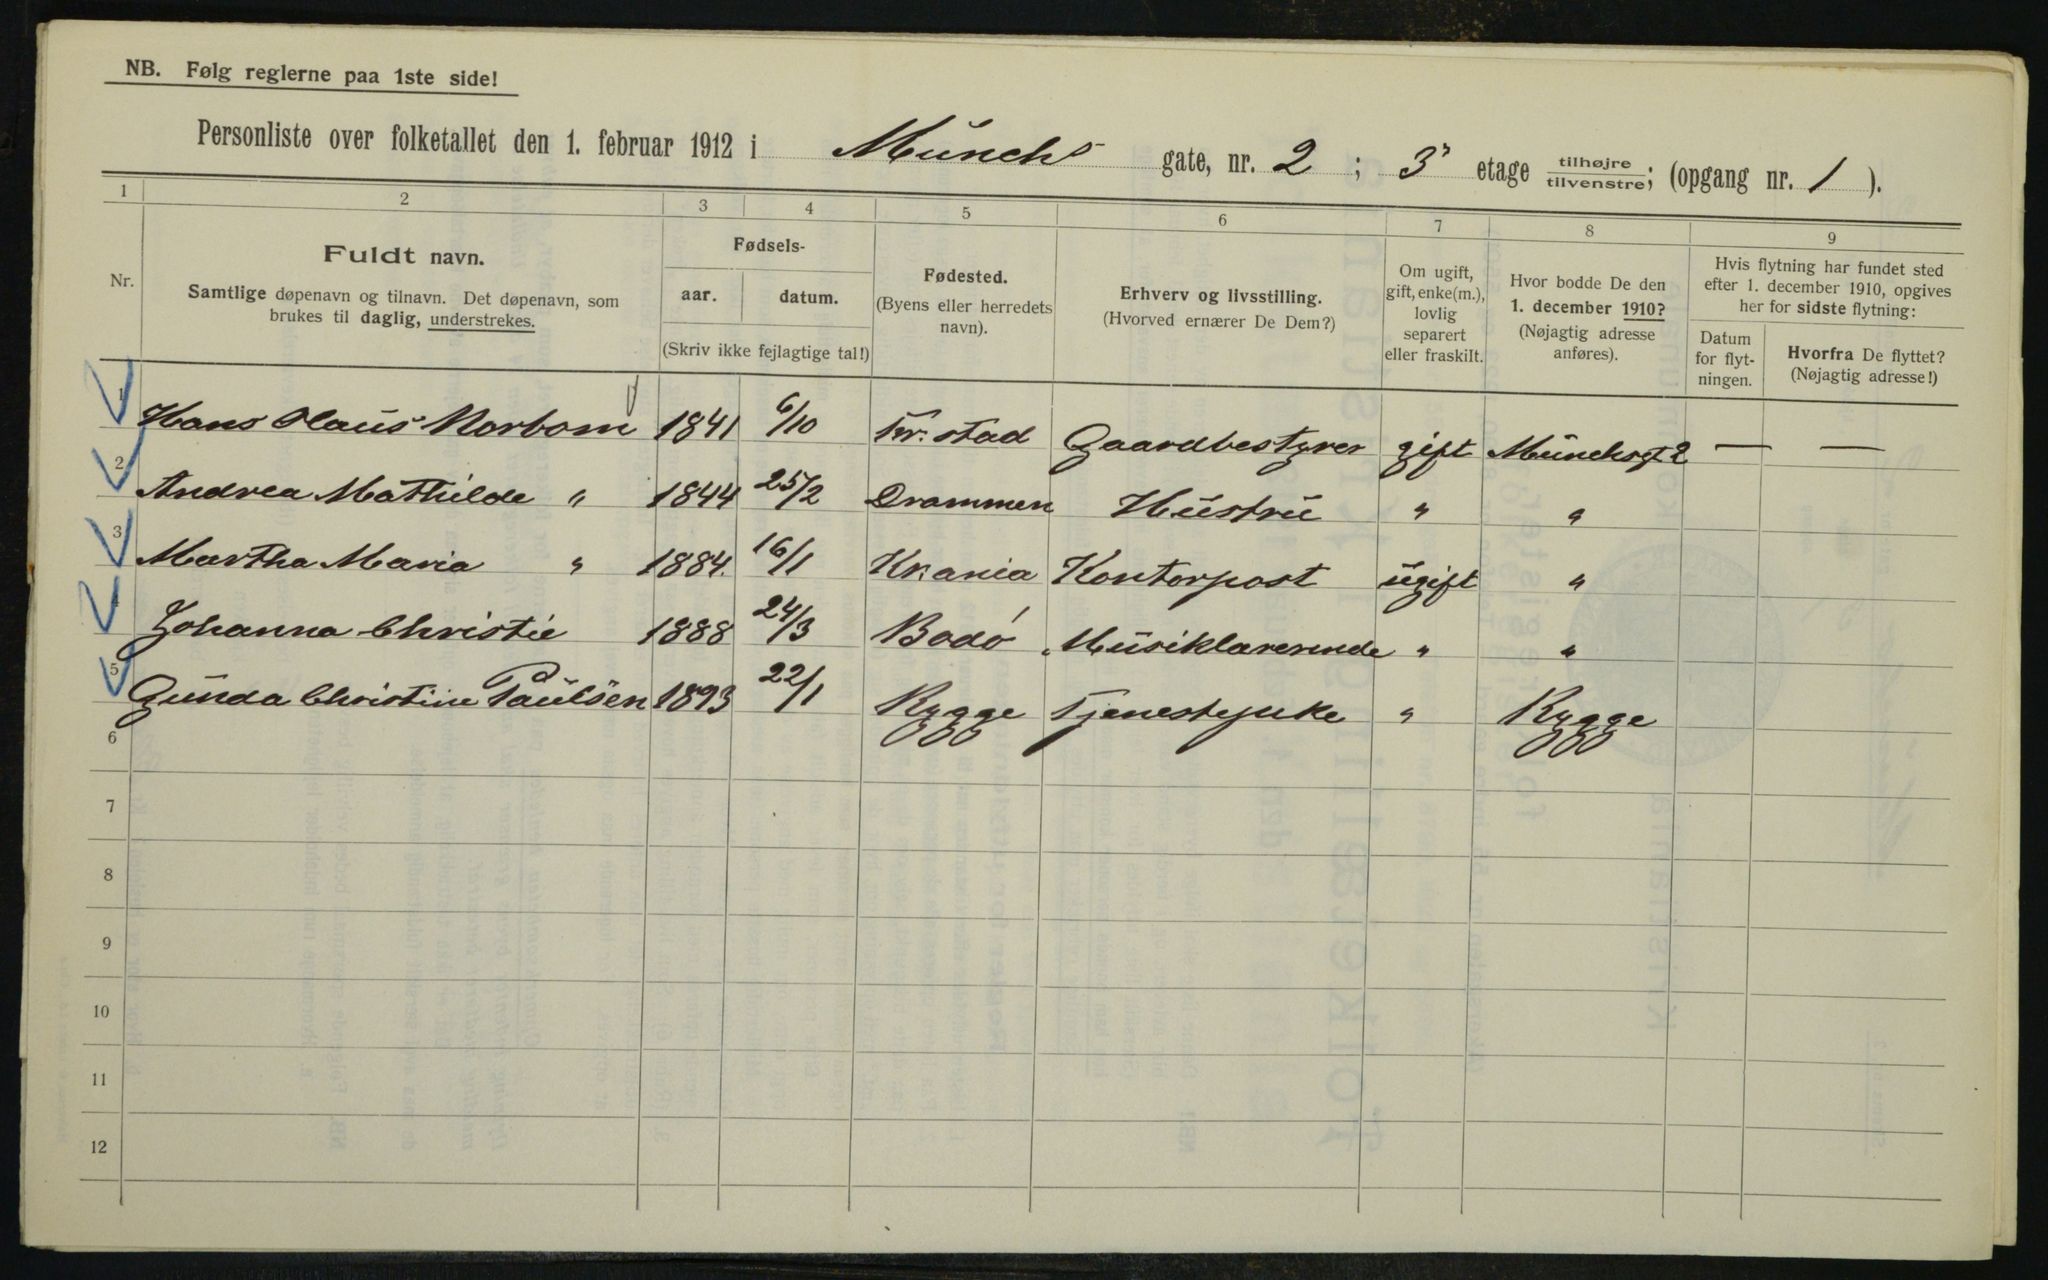 NB. Følg reglerne paa 1ste side!
Personliste over folketallet den 1. februar 1912 i Münchs gate, nr. 2 ; 3 etage tilhøjre tilvenstre; (opgang nr. 1 ).
1 2 3 4 5 6 7 8 9
Nr.
Fuldt navn.
Samtlige døpenavn og tilnavn. Det døpenavn, som
brukes til daglig, understrekes.
Fødsels-
aar. datum.
(Skriv ikke fejlagtige tal!)
Fødested.
(Byens eller herredets
navn).
Erhverv og livsstilling.
(Hvorved ernærer De Dem?)
Om ugift,
gift, enke(m.),
lovlig
separert
eller fraskilt.
Hvor bodde De den
1. december 1910?
(Nøjagtig adresse
anføres).
Hvis flytning har fundet sted
efter 1. december 1910, opgives
her for sidste flytning:
Datum
for flyt-
ningen.
Hvorfra De flyttet?
(Nøjagtig adresse!)
1 Hans Olaus Norbom 1841 6/10 Fr.stad Gaardbestyrer gift Münchsgt 2 — —
2 Andrea Mathilde " 1844 25/2 Drammen Hüstrü " "
3 Martha Maria " 1884. 16/1 Kr.ania Kontorpost ügift "
4 Johanna Christie 1888 24/3 Bodø Müsiklærerinde " "
5 Günda Christine Paülsen 1893 22/1 Rygge Tjenestepike " Rygge
6
7
8
9
10
11
12